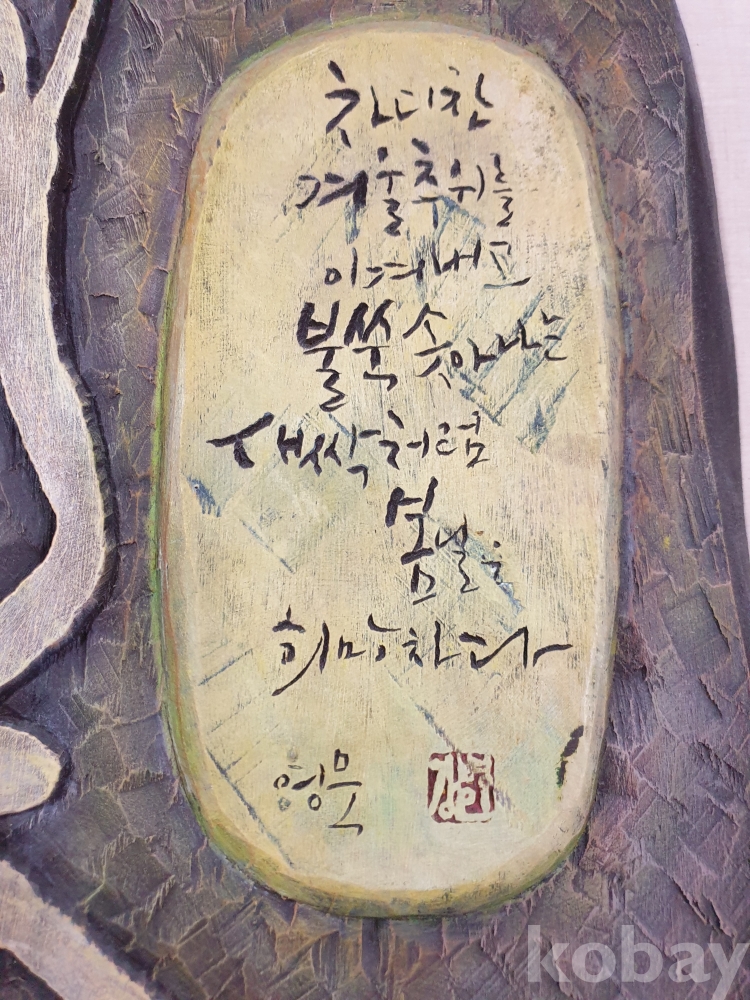 찻디찬
겨울추위를
이겨내고
불쑥 솟아나는
새싹처럼
봄날은
희망차다
영묵
kobay